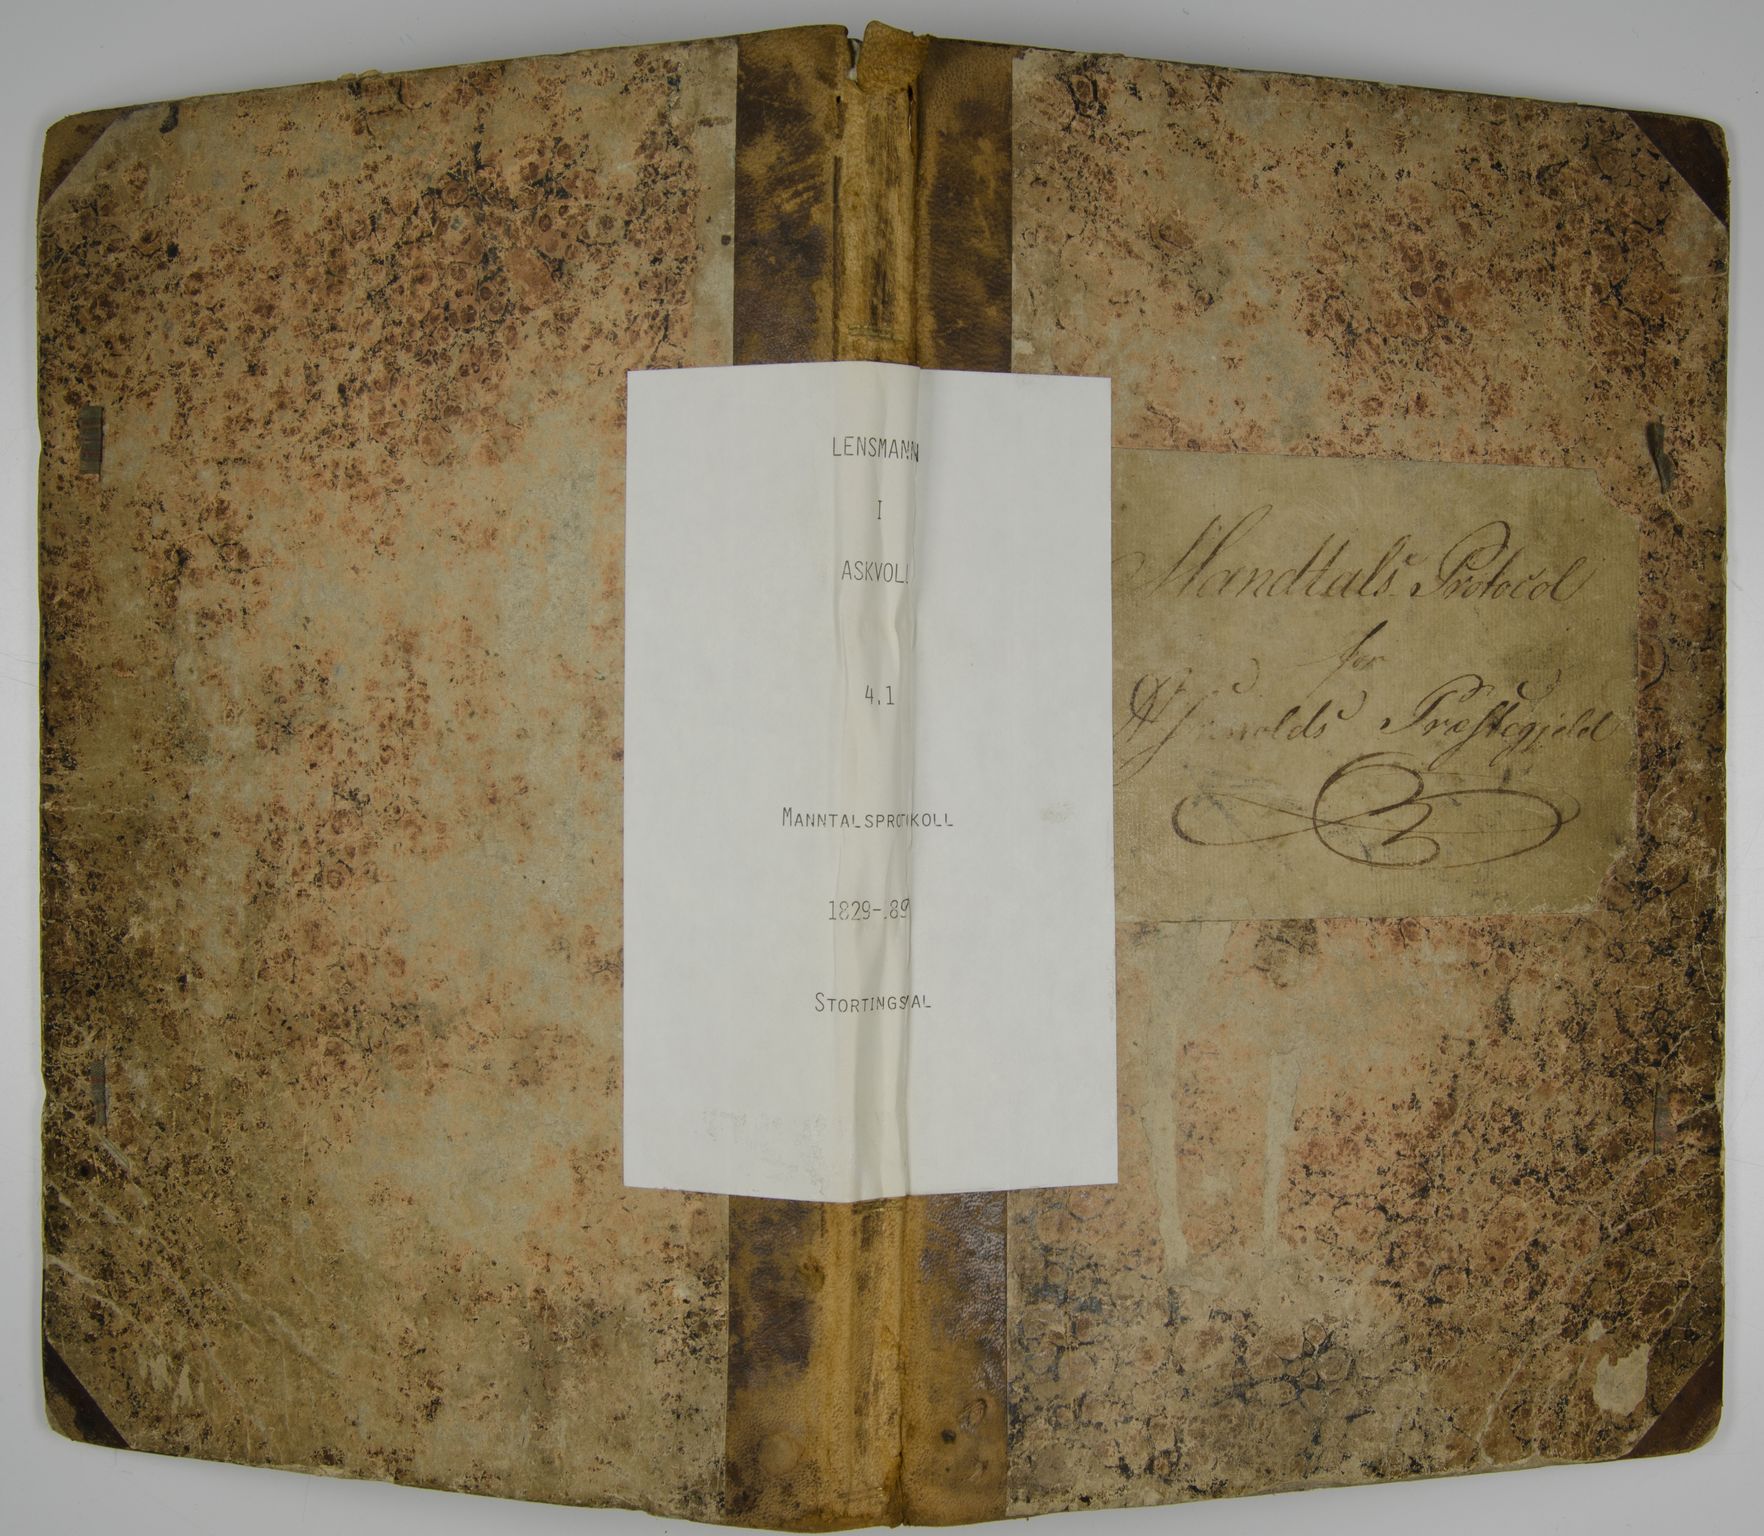 LENSMANN
I
ASKVOLL
4.1
MANNTALSPROTOKOLL
1829-
STORTINGSVAL
Mandtals Protocol
for
Præstegjeld